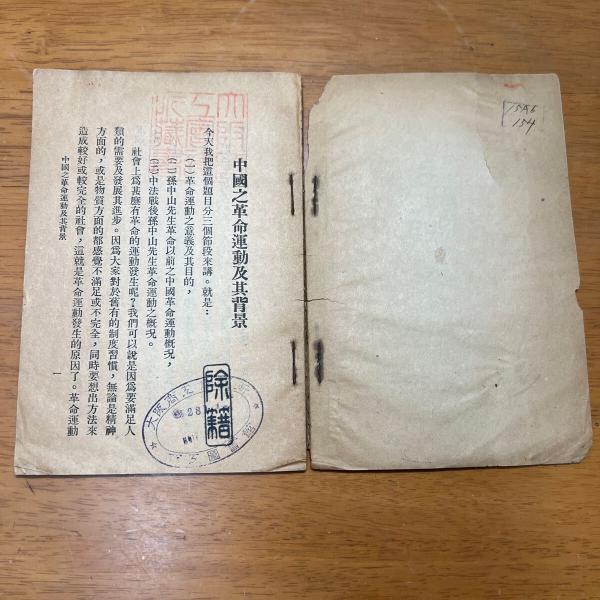 75A6
154
中國之革命運動及其背景
今天我把這個題目分三個節段來講。就是：
(一)革命運動之意義及其目的，
(二)孫中山先生革命以前之中國革命運動概況，
(三)中法戰後孫中山先生革命運動之概況。
社會上爲甚麽有革命的運動發生呢？我們可以說是因爲要滿足人
類的需要及發展其進步。因爲大家對於舊有的制度習慣，無論是精神
方面的，或是物質方面的都感覺不滿足或不完全，同時要想出方法來
造成較好或較完全的社會，這就是革命運動發生的原因了。革命運動
中國之革命運動及其背景
一
除籍